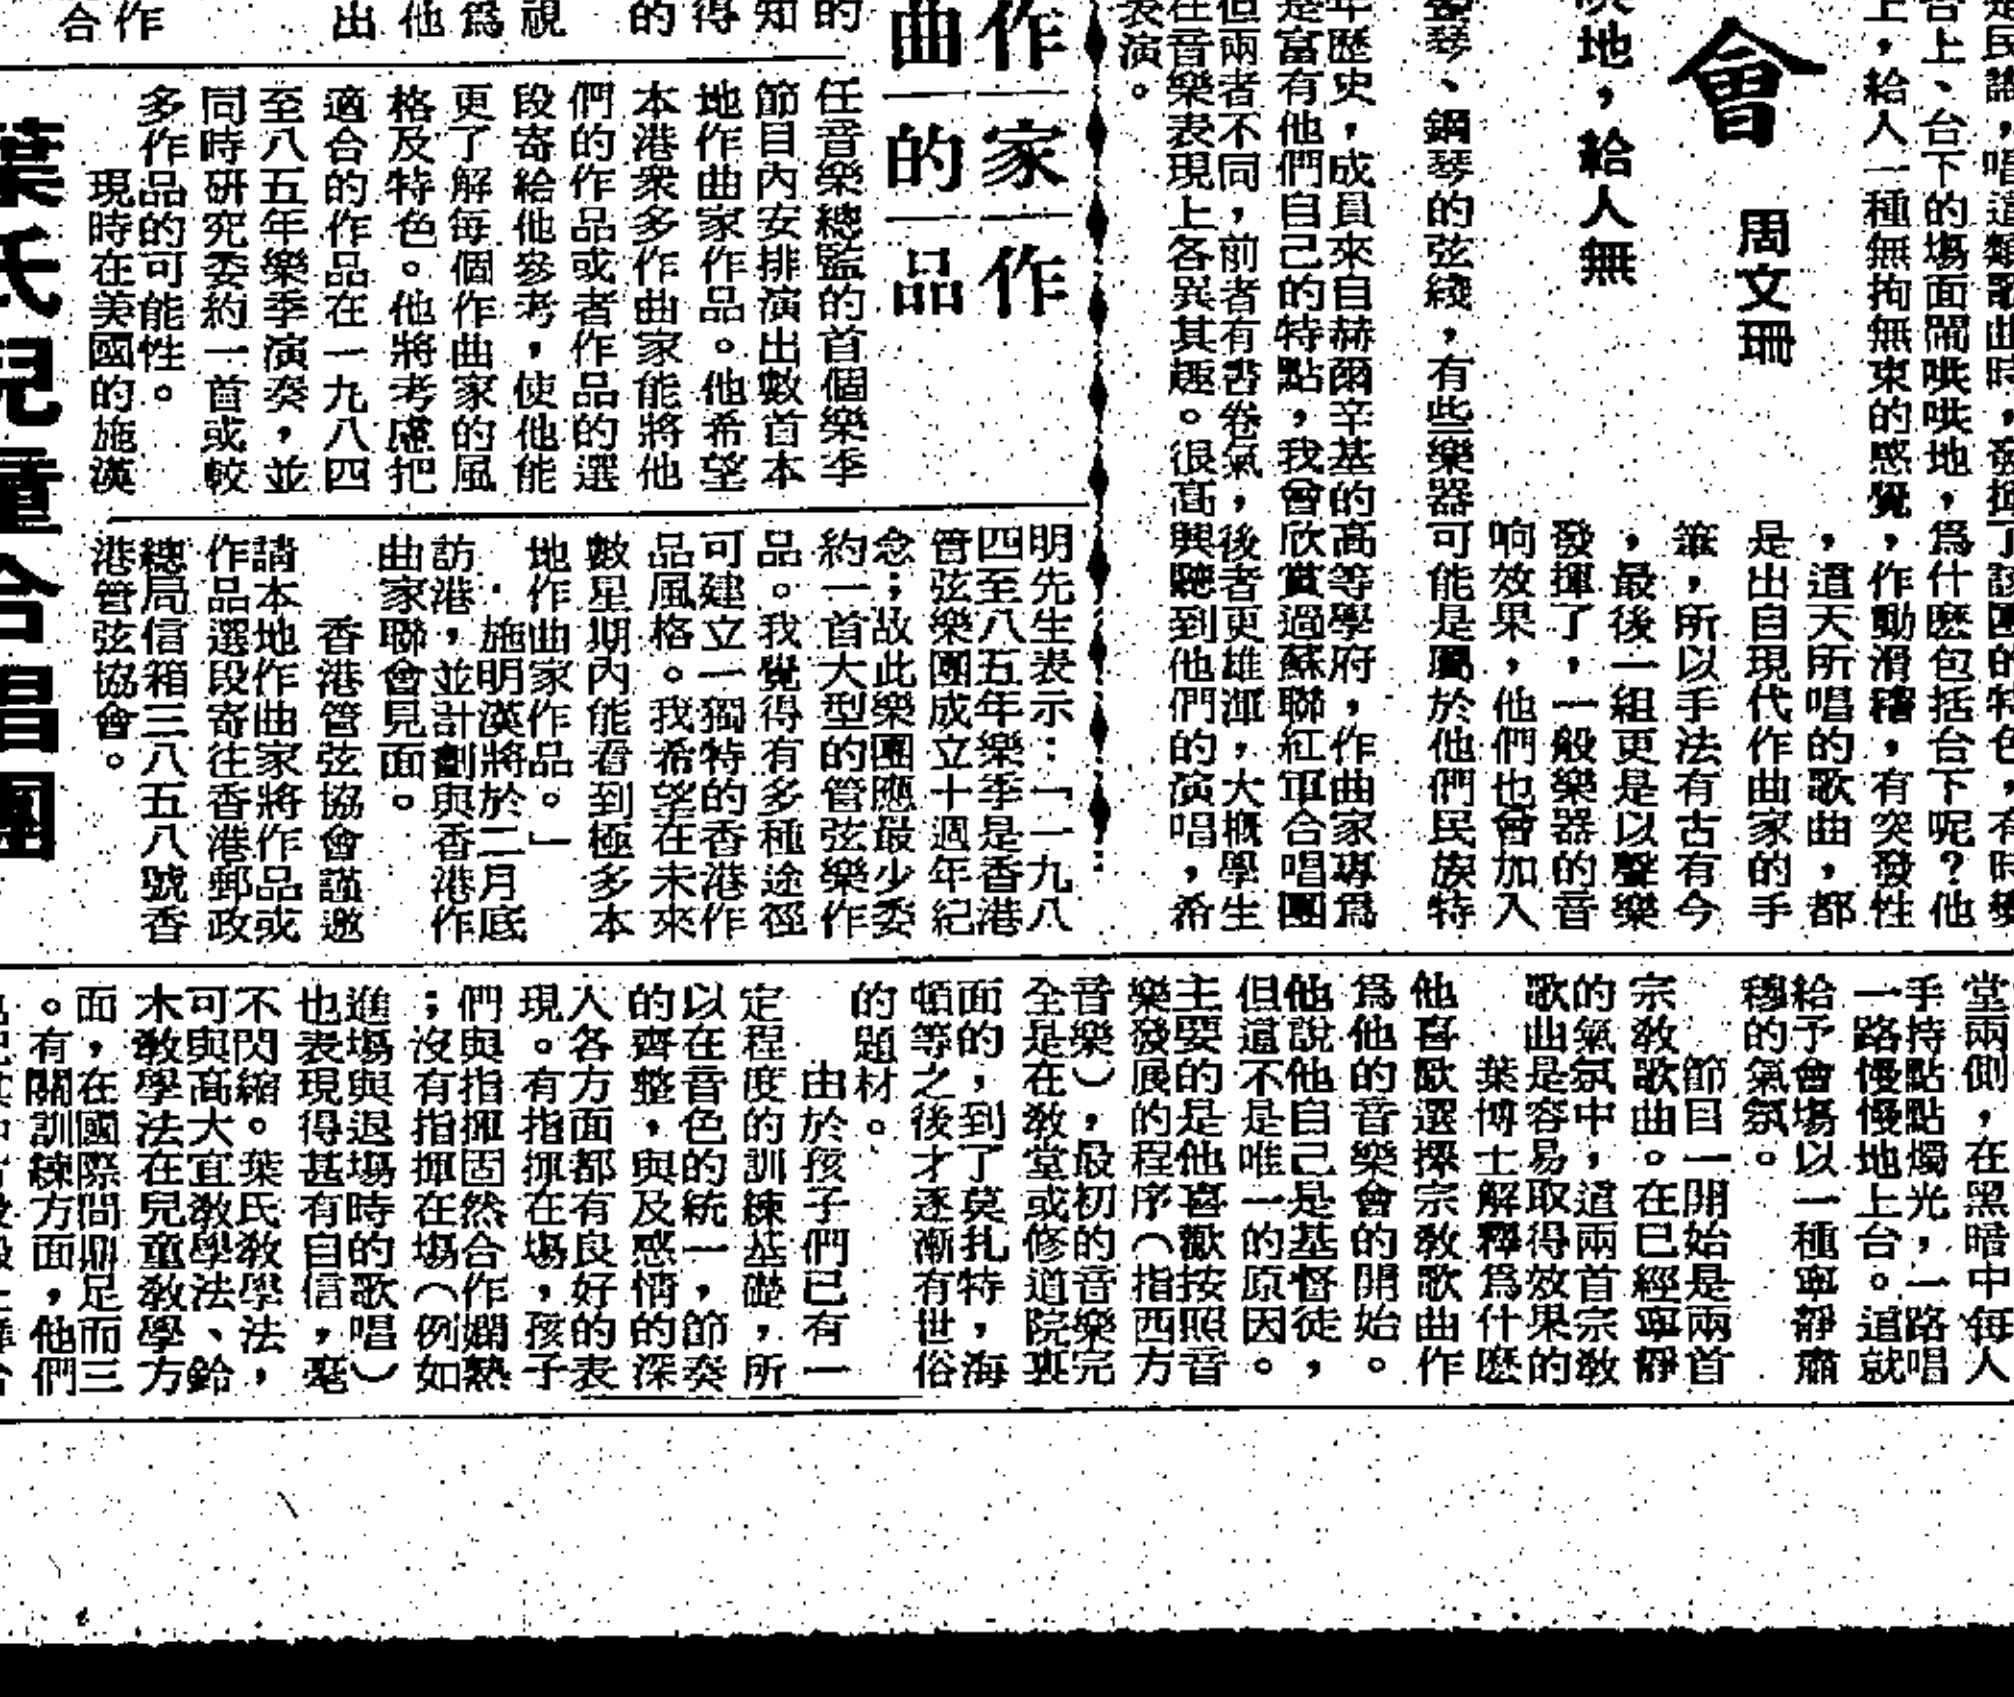 是民謠，唱這類歌曲時，發揮了該團的特色，有時樂
台上、台下的塲面鬧哄哄地，爲什麽包括台下呢？他
上，給人一種無拘無束的感覺，作動滑稽，有突發性
會
周文珊
，這天所唱的歌曲，都
是出自現代作曲家的手
筆，所以手法有古有今
地，給人無
，最後一組更是以聲樂
發揮了，一般樂器的音
响效果，他們也會加入
琴、鋼琴的弦綫，有些樂器可能是屬於他們民族特
年歷史，成員來自赫爾辛基的高等學府，作曲家專爲
是富有他們自己的特點，我曾欣賞過蘇聯紅軍合唱團
但兩者不同，前者有書卷氣，後者更雄渾，大概學生
在音樂表現上各異其趣。很高興聽到他們的演唱，希
表演。
作家作
曲的品
的
知
得
的
視
爲
他
出
作
合
任音樂總監的首個樂季
節目內安排演出數首本
地作曲家作品。他希望
本港衆多作曲家能將他
們的作品或者作品的選
段寄給他參考，使他能
更了解每個作曲家的風
格及特色。他將考慮把
適合的作品在一九八四
至八五年樂季演奏，並
同時研究委約一首或較
多作品的可能性。
現時在美國的施漢
明先生表示：「一九八
四至八五年樂季是香港
管弦樂團成立十週年紀
念；故此樂團應最少委
約一首大型的管弦樂作
品。我覺得有多種途徑
可建立一獨特的香港作
品風格。我希望在未來
數星期內能看到極多本
地作曲家作品。」
施明漢將於二月底
訪港，並計劃與香港作
曲家聯會見面。
香港管弦協會謹邀
請本地作曲家將作品或
作品選段寄往香港郵政
總局信箱三八五八號香
港管弦協會。
葉氏兒童合唱團
堂兩側，在黑暗中每人
手持點點燭光，一路唱
一路慢慢地上台。這就
給予會塲以一種寧靜肅
穆的氣氛。
節目一開始是兩首
宗敎歌曲。在已經寧靜
的氣氛中，這兩首宗敎
歌曲是容易取得效果的
葉博士解釋爲什麽
他喜歡選擇宗敎歌曲作
爲他的音樂會的開始。
他說他自己是基督徒，
但這不是唯一的原因。
主要的是他喜歡按照音
樂發展的程序（指西方
音樂），最初的音樂完
全是在敎堂或修道院裏
面的，到了莫扎特，海
頓等之後才逐漸有世俗
的題材。
由於孩子們已有一
定程度的訓練基礎，所
以在音色的統一，節奏
的齊整，與及感情的深
入各方面都有良好的表
現。有指揮在塲，孩子
們與指揮固然合作嫻熟
；沒有指揮在塲（例如
進塲與退塲時的歌唱）
也表現得甚有自信，毫
不閃縮。葉氏敎學法，
可與高大宜敎學法、鈴
木敎學法在兒童敎學方
面，在國際間鼎足而三
。有關訓練方面，他們